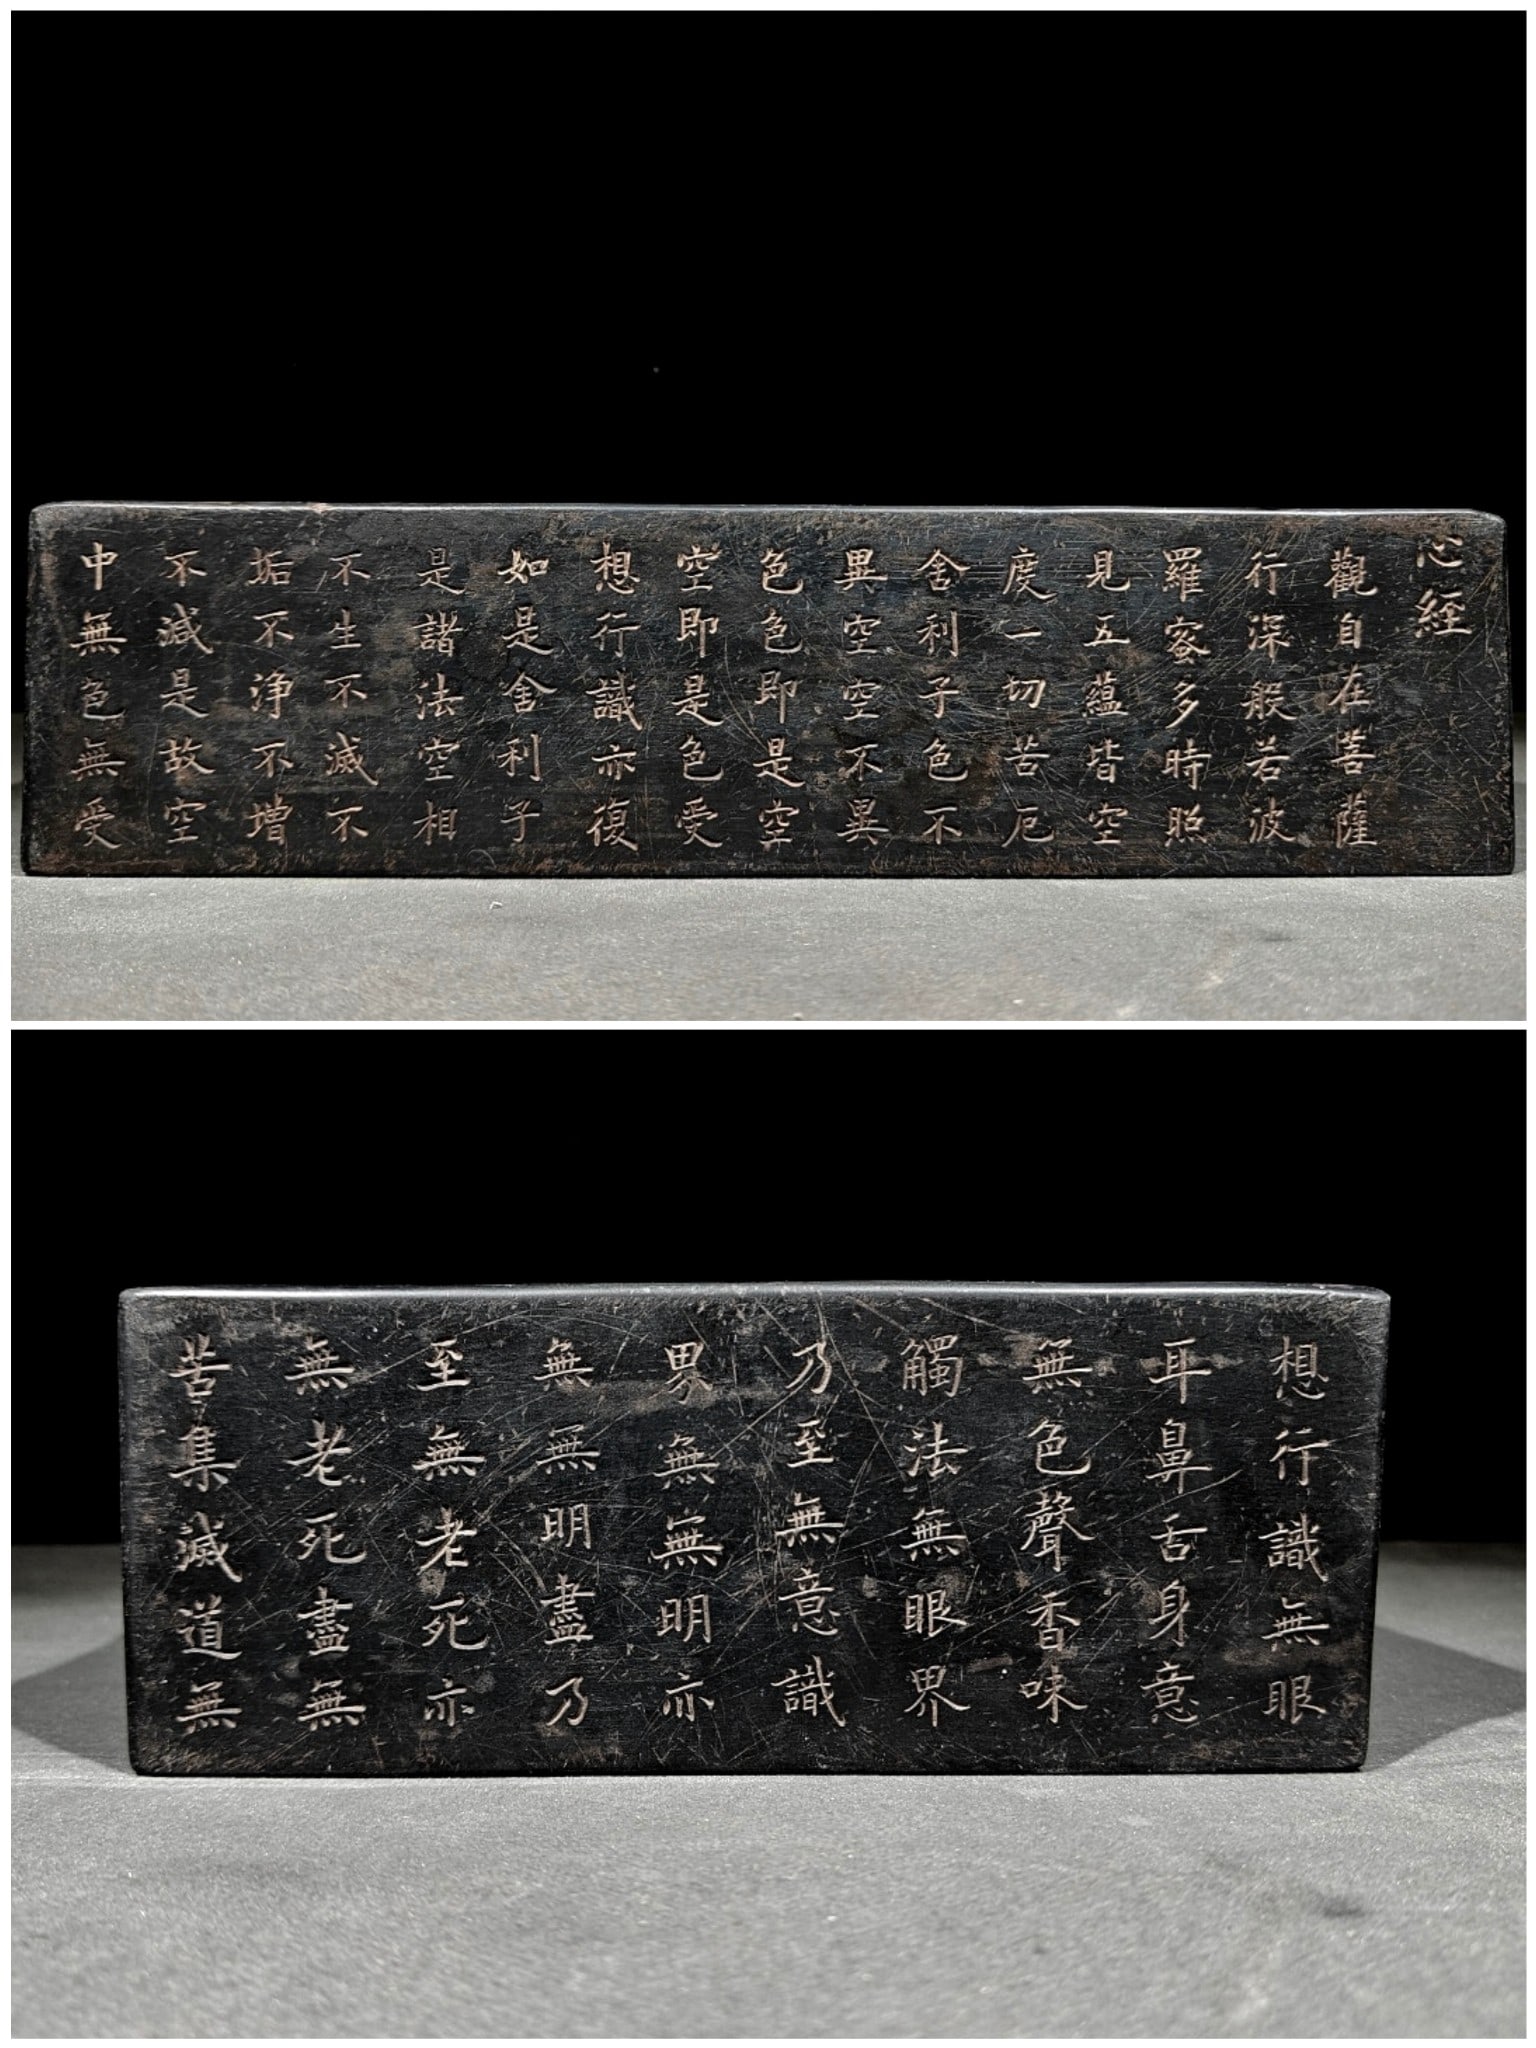 心經
觀自在菩薩
行深般若波
羅蜜多時照
見五蘊皆空
度一切苦厄
舍利子色不
異空空不異
色色即是空
空即是色受
想行識亦復
如是舍利子
是諸法空相
不生不滅不
垢不淨不增
不減是故空
中無色無受
想行識無眼
耳鼻舌身意
無色聲香味
觸法無眼界
乃至無意識
界無無明亦
無無明盡乃
至無老死亦
無老死盡無
苦集滅道無